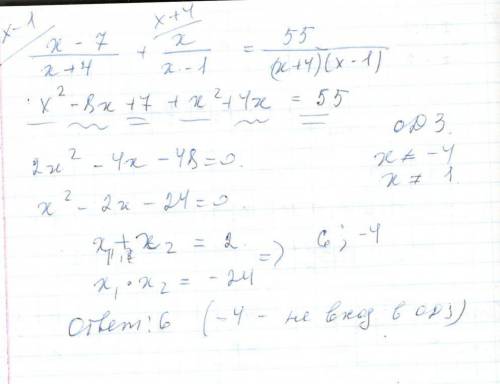 x-1 x+4
(x-7)/(x+4) + x/(x-1) = 55/((x+4)(x-1))
x² - 8x + 7 + x² + 4x = 55
ОДЗ.
2x² - 4x - 48 = 0.
x ≠ -4
x ≠ 1.
x² - 2x - 24 = 0.
x₁ + x₂ = 2
=> 6; -4
x₁ · x₂ = -24
Ответ: 6 (-4 - не вход в ОДЗ)